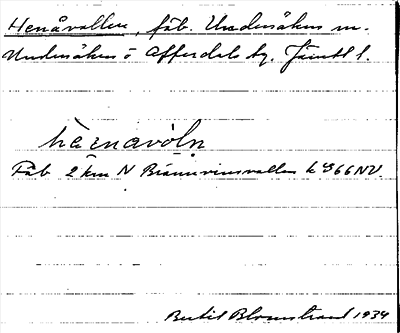 Henåvallen, fäb. Undersåkers sn.
Undersåkers o Offerdals tg. Jämtl l.
hä̀ǹavòln
Fäb 2 km N Brännvinsvallen k S66NV.
Bertil Blomstrand 1934